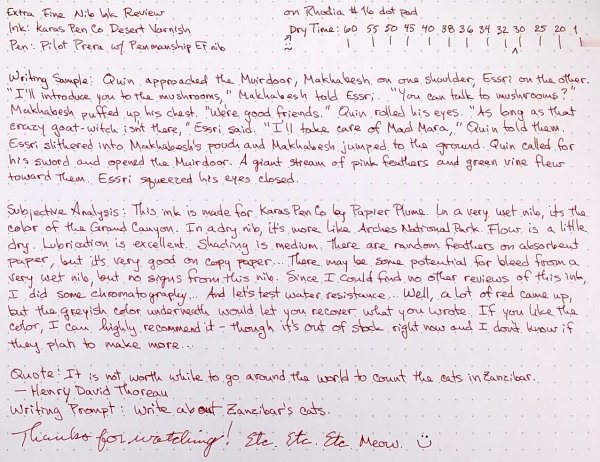 Extra Fine Nib Ink Review on Rhodia #16 dot pad
Ink: Karas Pen Co Desert Varnish Dry Time: 60 55 50 45 40 38 36 34 32 30 25 20 1
Pen: Pilot Prera w/ Penmanship EF nib
Writing Sample: Quin approached the Muirdoor, Makhabesh on one shoulder, Essri on the other.
"I'll introduce you to the mushrooms," Makhabesh told Essri. "You can talk to mushrooms?"
Makhabesh puffed up his chest. "We're good friends." Quin rolled his eyes. "As long as that
crazy goat-witch isn't there," Essri said. "I'll take care of Mad Mara," Quin told them.
Essri slithered into Makhabesh's pouch and Makhabesh jumped to the ground. Quin called for
his sword and opened the Muirdoor. A giant stream of pink feathers and green vine flew
toward them. Essri squeezed his eyes closed.
Subjective Analysis: This ink is made for Karas Pen Co by Papier Plume. In a very wet nib, it's the
color of the Grand Canyon. In a dry nib, it's more like Arches National Park. Flow is a little
dry. Lubrication is excellent. Shading is medium. There are random feathers on absorbent
paper, but it's very good on copy paper... There may be some potential for bleed from a
very wet nib, but no signs from this nib. Since I could find no other reviews of this ink,
I did some chromatography... And let's test water resistance... Well, a lot of red came up,
but the greyish color underneath would let you recover what you wrote. If you like the
color, I can highly recommend it - though it's out of stock right now and I don't know if
they plan to make more...
Quote: It is not worth while to go around the world to count the cats in Zanzibar.
- Henry David Thoreau
Writing Prompt: Write about Zanzibar's cats.
Thanks for watching! Etc. Etc. Etc. Meow.